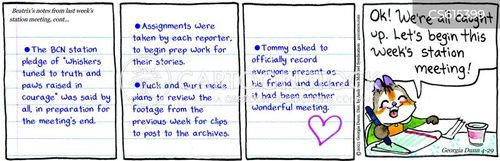 Beatrix's notes from last week's
station meeting, cont...
• The BCN station
pledge of "Whiskers
tuned to truth and
paws raised in
courage" was said by
all, in preparation for
the meeting's end.
• Assignments were
taken by each reporter,
to begin prep work for
their stories.
• Puck and Burt made
plans to review the
footage from the
previous week for clips
to post to the archives.
• Tommy asked to
officially record
everyone present as
his friend and declared
it had been another
wonderful meeting.
Ok! We're all caught
up. Let's begin this
week's station
meeting!
Georgia Dunn 4-29